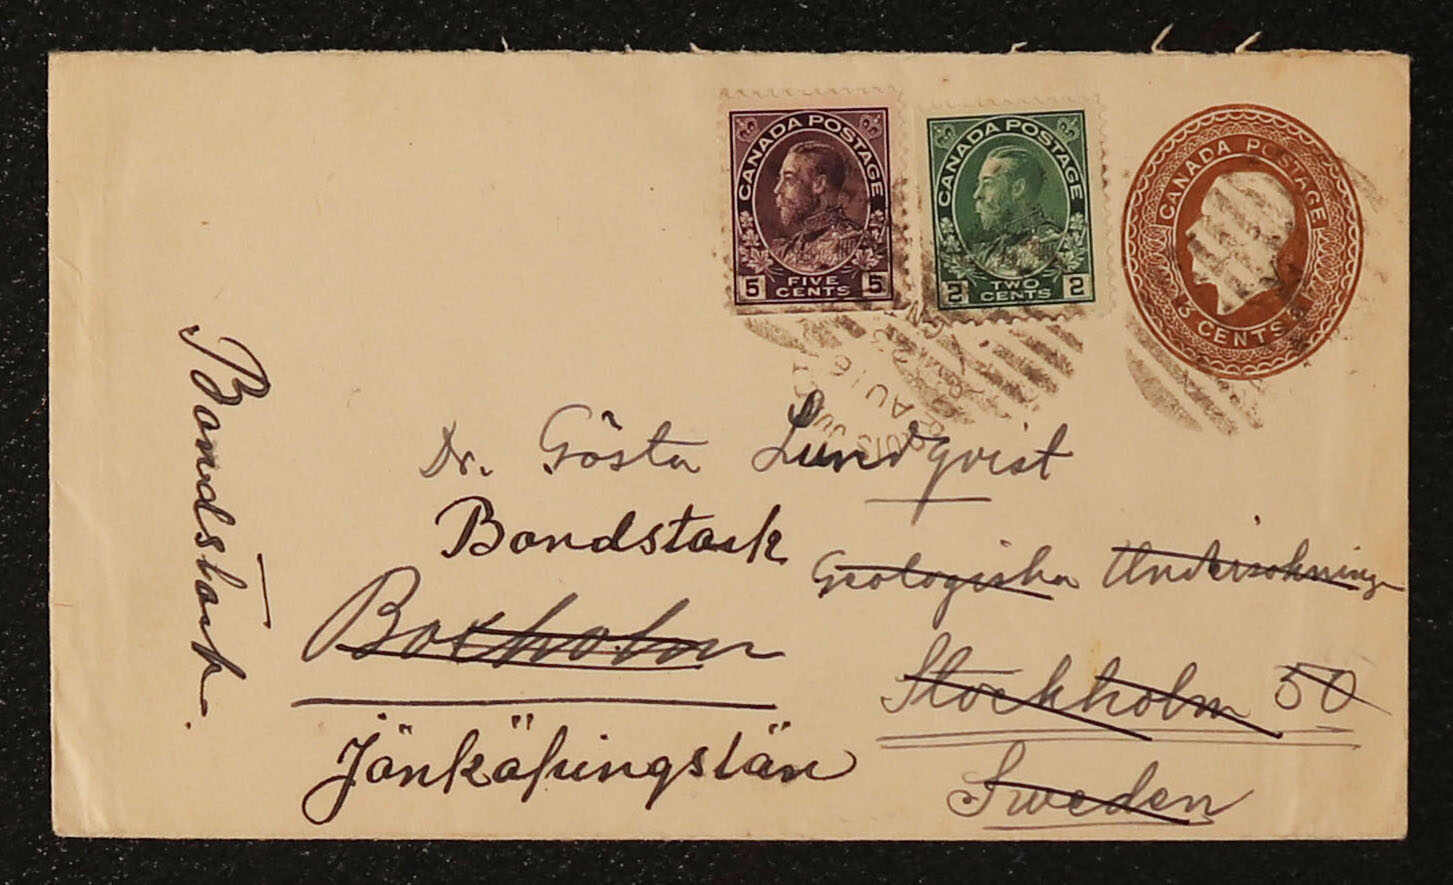 CANADA POSTAGE
5 FIVE CENTS 5
CANADA POSTAGE
2 TWO CENTS 2
CANADA POSTAGE
3 CENTS
AU 16
23
Dr. Gösta Lundqvist
Bondstork
Geologiska Undersökninge
Boxholm
Stockholm 50
Jönköpingslän
Sweden
Bondstorp.